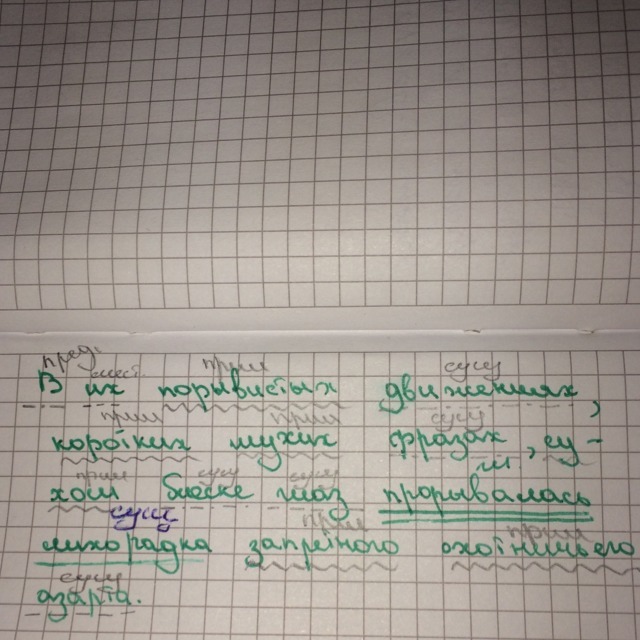 пред. мест. прил сущ
В их порывистых движениях,
прил прил сущ
коротких глухих фразах, су-
прил сущ сущ гл.
хом блеске глаз прорывалась
сущ прил прил
лихорадка запретного охотничьего
сущ
азарта.